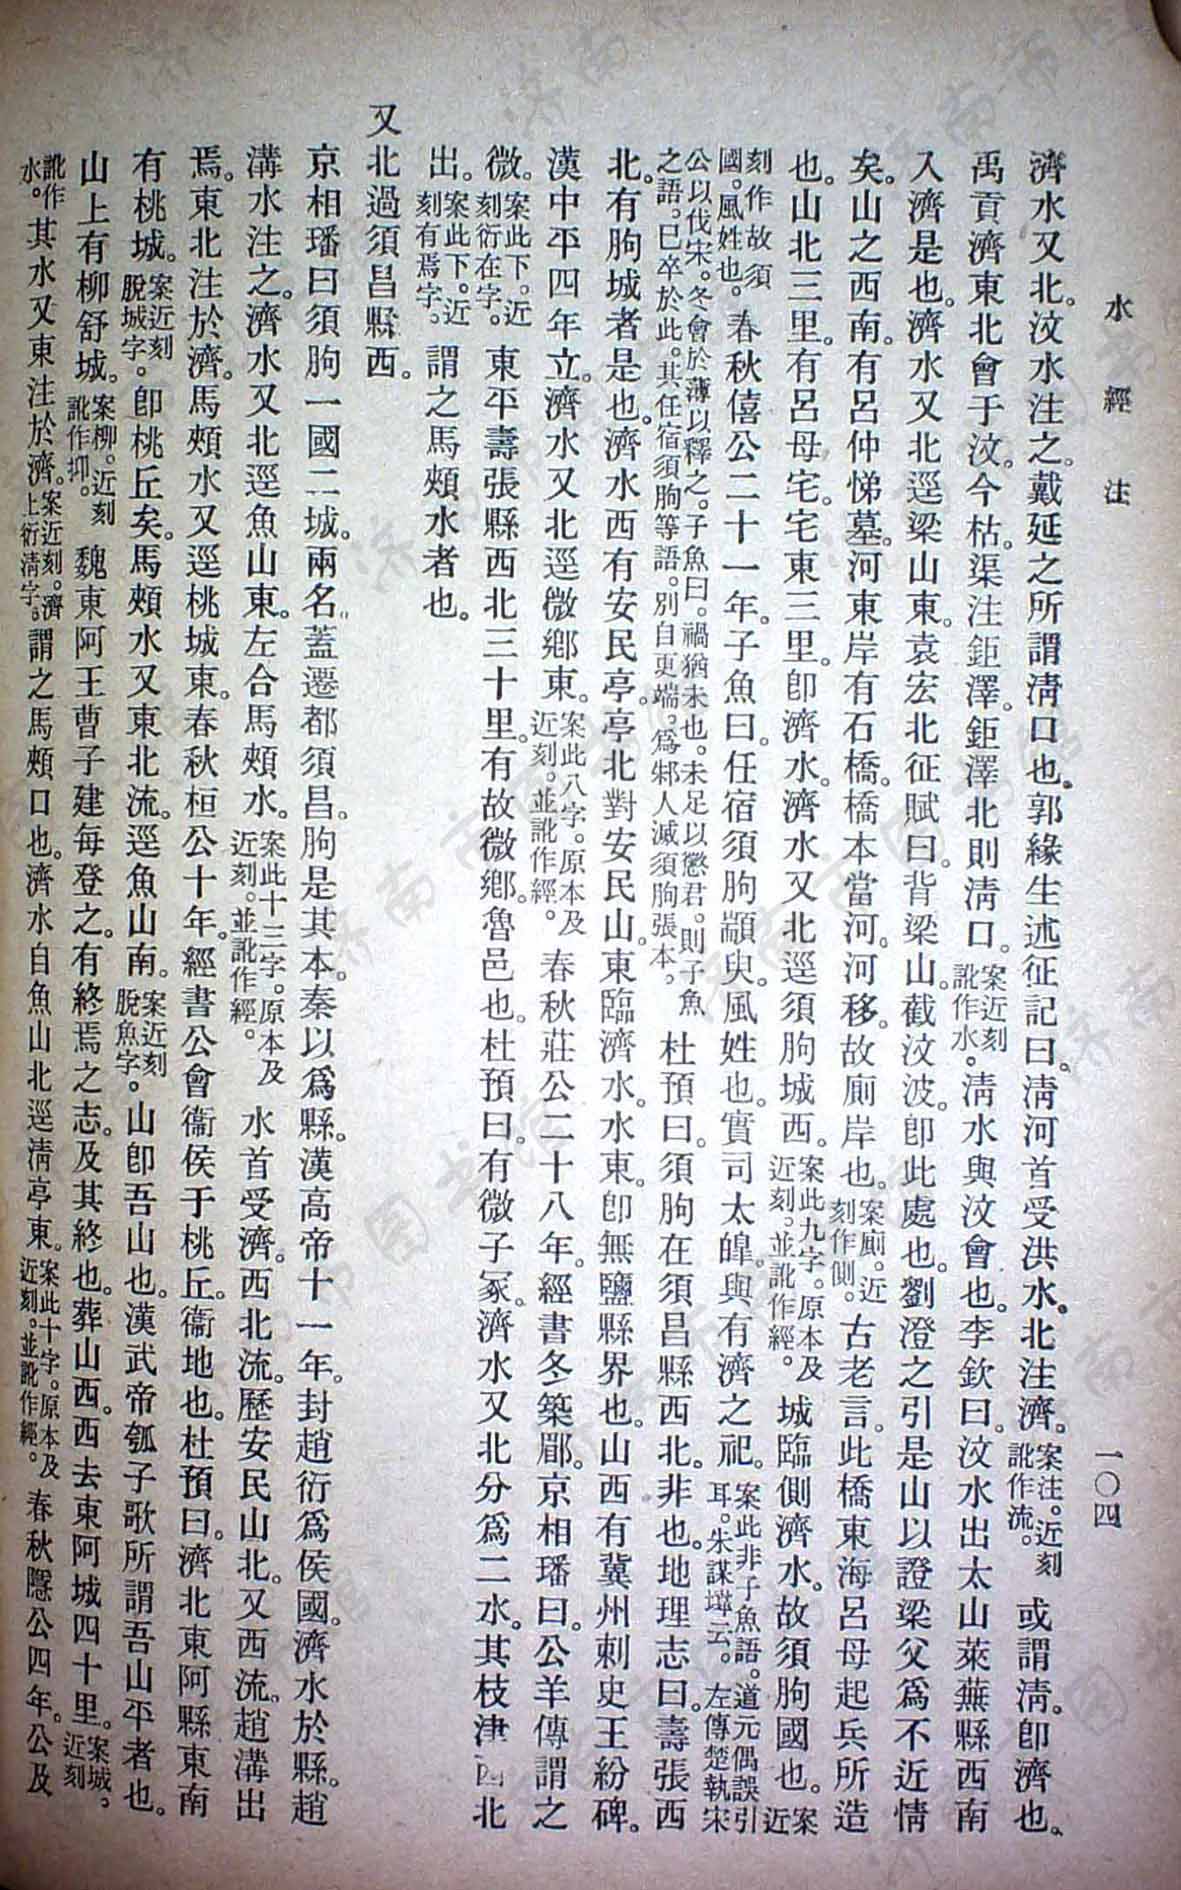 水經注
一〇四
濟水又北。汶水注之。戴延之所謂清口也。郭緣生述征記曰。清河首受洪水。北注濟。案注。近刻訛作流。或謂清。卽濟也。
禹貢濟東北會于汶。今枯渠注鉅澤。鉅澤北則清口。案近刻訛作水。清水與汶會也。李欽曰。汶水出太山萊蕪縣西南
入濟是也。濟水又北逕梁山東。袁宏北征賦曰。背梁山。截汶波。卽此處也。劉澄之引是山以證梁父爲不近情
矣。山之西南。有呂仲悌墓。河東岸有石橋。橋本當河。河移。故廁岸也。案廁。近刻作側。古老言。此橋東海呂母起兵所造
也。山北三里。有呂母宅。宅東三里。卽濟水。濟水又北逕須朐城西。案此九字。原本及近刻。並訛作經。城臨側濟水。故須朐國也。案近
刻作故須國。風姓也。春秋僖公二十一年。子魚曰。任宿須朐顓臾。風姓也。實司太皥。與有濟之祀。案此非子魚語。道元偶誤引耳。朱謀㙔云。左傳楚執宋
公以伐宋。冬會於薄以釋之。子魚曰。禍猶未也。未足以懲君。則子魚之語。已卒於此。其任宿須朐等語。別自更端。爲邾人滅須朐張本。杜預曰。須朐在須昌縣西北。非也。地理志曰。壽張西
北。有朐城者是也。濟水西有安民亭。亭北對安民山。東臨濟水。水東。卽無鹽縣界也。山西有冀州刺史王紛碑。
漢中平四年立。濟水又北逕微鄉東。案此八字。原本及近刻。並訛作經。春秋莊公二十八年。經書冬築郿。京相璠曰。公羊傳謂之
微。案此下。近刻衍在字。東平壽張縣西北三十里。有故微鄉。魯邑也。杜預曰。有微子冢。濟水又北分爲二水。其枝津西北
出。案此下。近刻有焉字。謂之馬頰水者也。
又北過須昌縣西。
京相璠曰。須朐一國二城。兩名。蓋遷都須昌。朐是其本。秦以爲縣。漢高帝十一年。封趙衍爲侯國。濟水於縣。趙
溝水注之。濟水又北逕魚山東。左合馬頰水。案此十三字。原本及近刻。並訛作經。水首受濟。西北流。歷安民山北。又西流。趙溝出
焉。東北注於濟。馬頰水又逕桃城東。春秋桓公十年。經書公會衞侯于桃丘。衞地也。杜預曰。濟北東阿縣東南
有桃城。案近刻脫城字。卽桃丘矣。馬頰水又東北流。逕魚山南。案近刻脫魚字。山卽吾山也。漢武帝瓠子歌所謂吾山平者也。
山上有柳舒城。案柳。近刻訛作抑。魏東阿王曹子建每登之。有終焉之志。及其終也。葬山西。西去東阿城四十里。案城。近刻
訛作水。其水又東注於濟。案近刻。濟上衍清字。謂之馬頰口也。濟水自魚山北逕清亭東。案此十字。原本及近刻。並訛作經。春秋隱公四年。公及